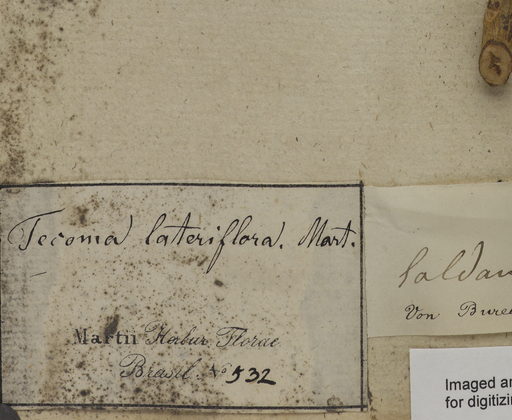 Tecoma lateriflora. Mart.
Martii Herbar. Florae
Brasil. No 532
Saldan
Von Bure
Imaged an
for digitizin